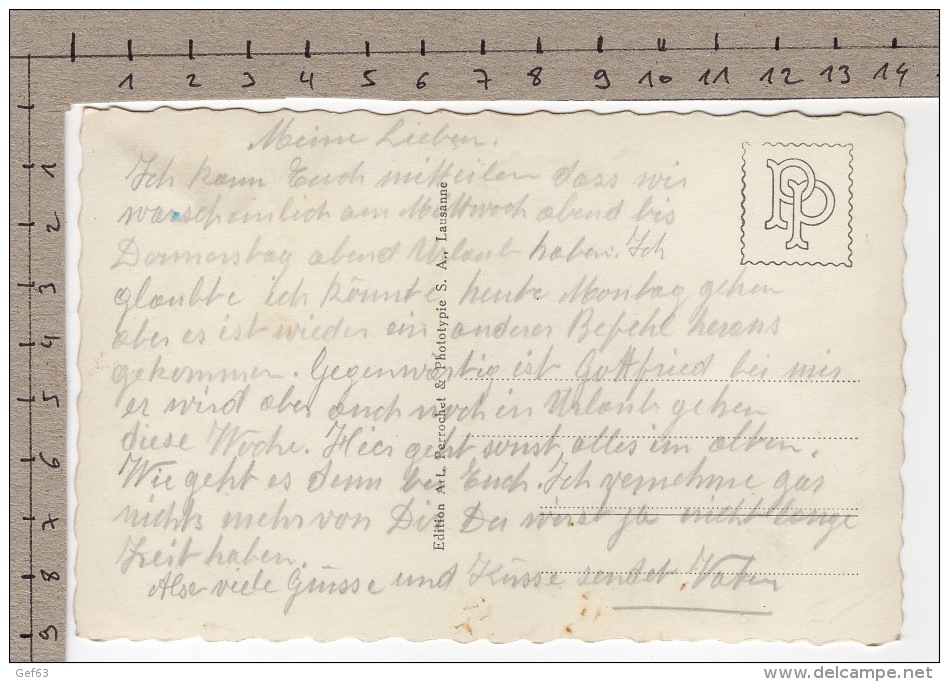 1 2 3 4 5 6 7 8 9 10 11 12 13 14
1 2 3 4 5 6 7 8 9
Meine Lieben.
Ich kann Euch mitteilen dass wir
warscheinlich am Mittwoch abend bis
Donnerstag abend Urlaub haben. Ich
glaubte ich könnte heute Montag gehen
aber es ist wieder ein anderer Befehl heraus
gekommen. Gegenwärtig ist Gottfried bei mir
er wird aber auch noch in Urlaub gehen
diese Woche. Hier geht sonst alles im alten.
Wie geht es denn bei Euch. Ich vernehme gar
nichts mehr von Dir Du wirst ja nicht lange
Zeit haben.
Also viele Grüsse und Küsse sendet Vater
Edition Art. Perrochet & Phototypie S. A., Lausanne
PP
Gef63
www.delcampe.net